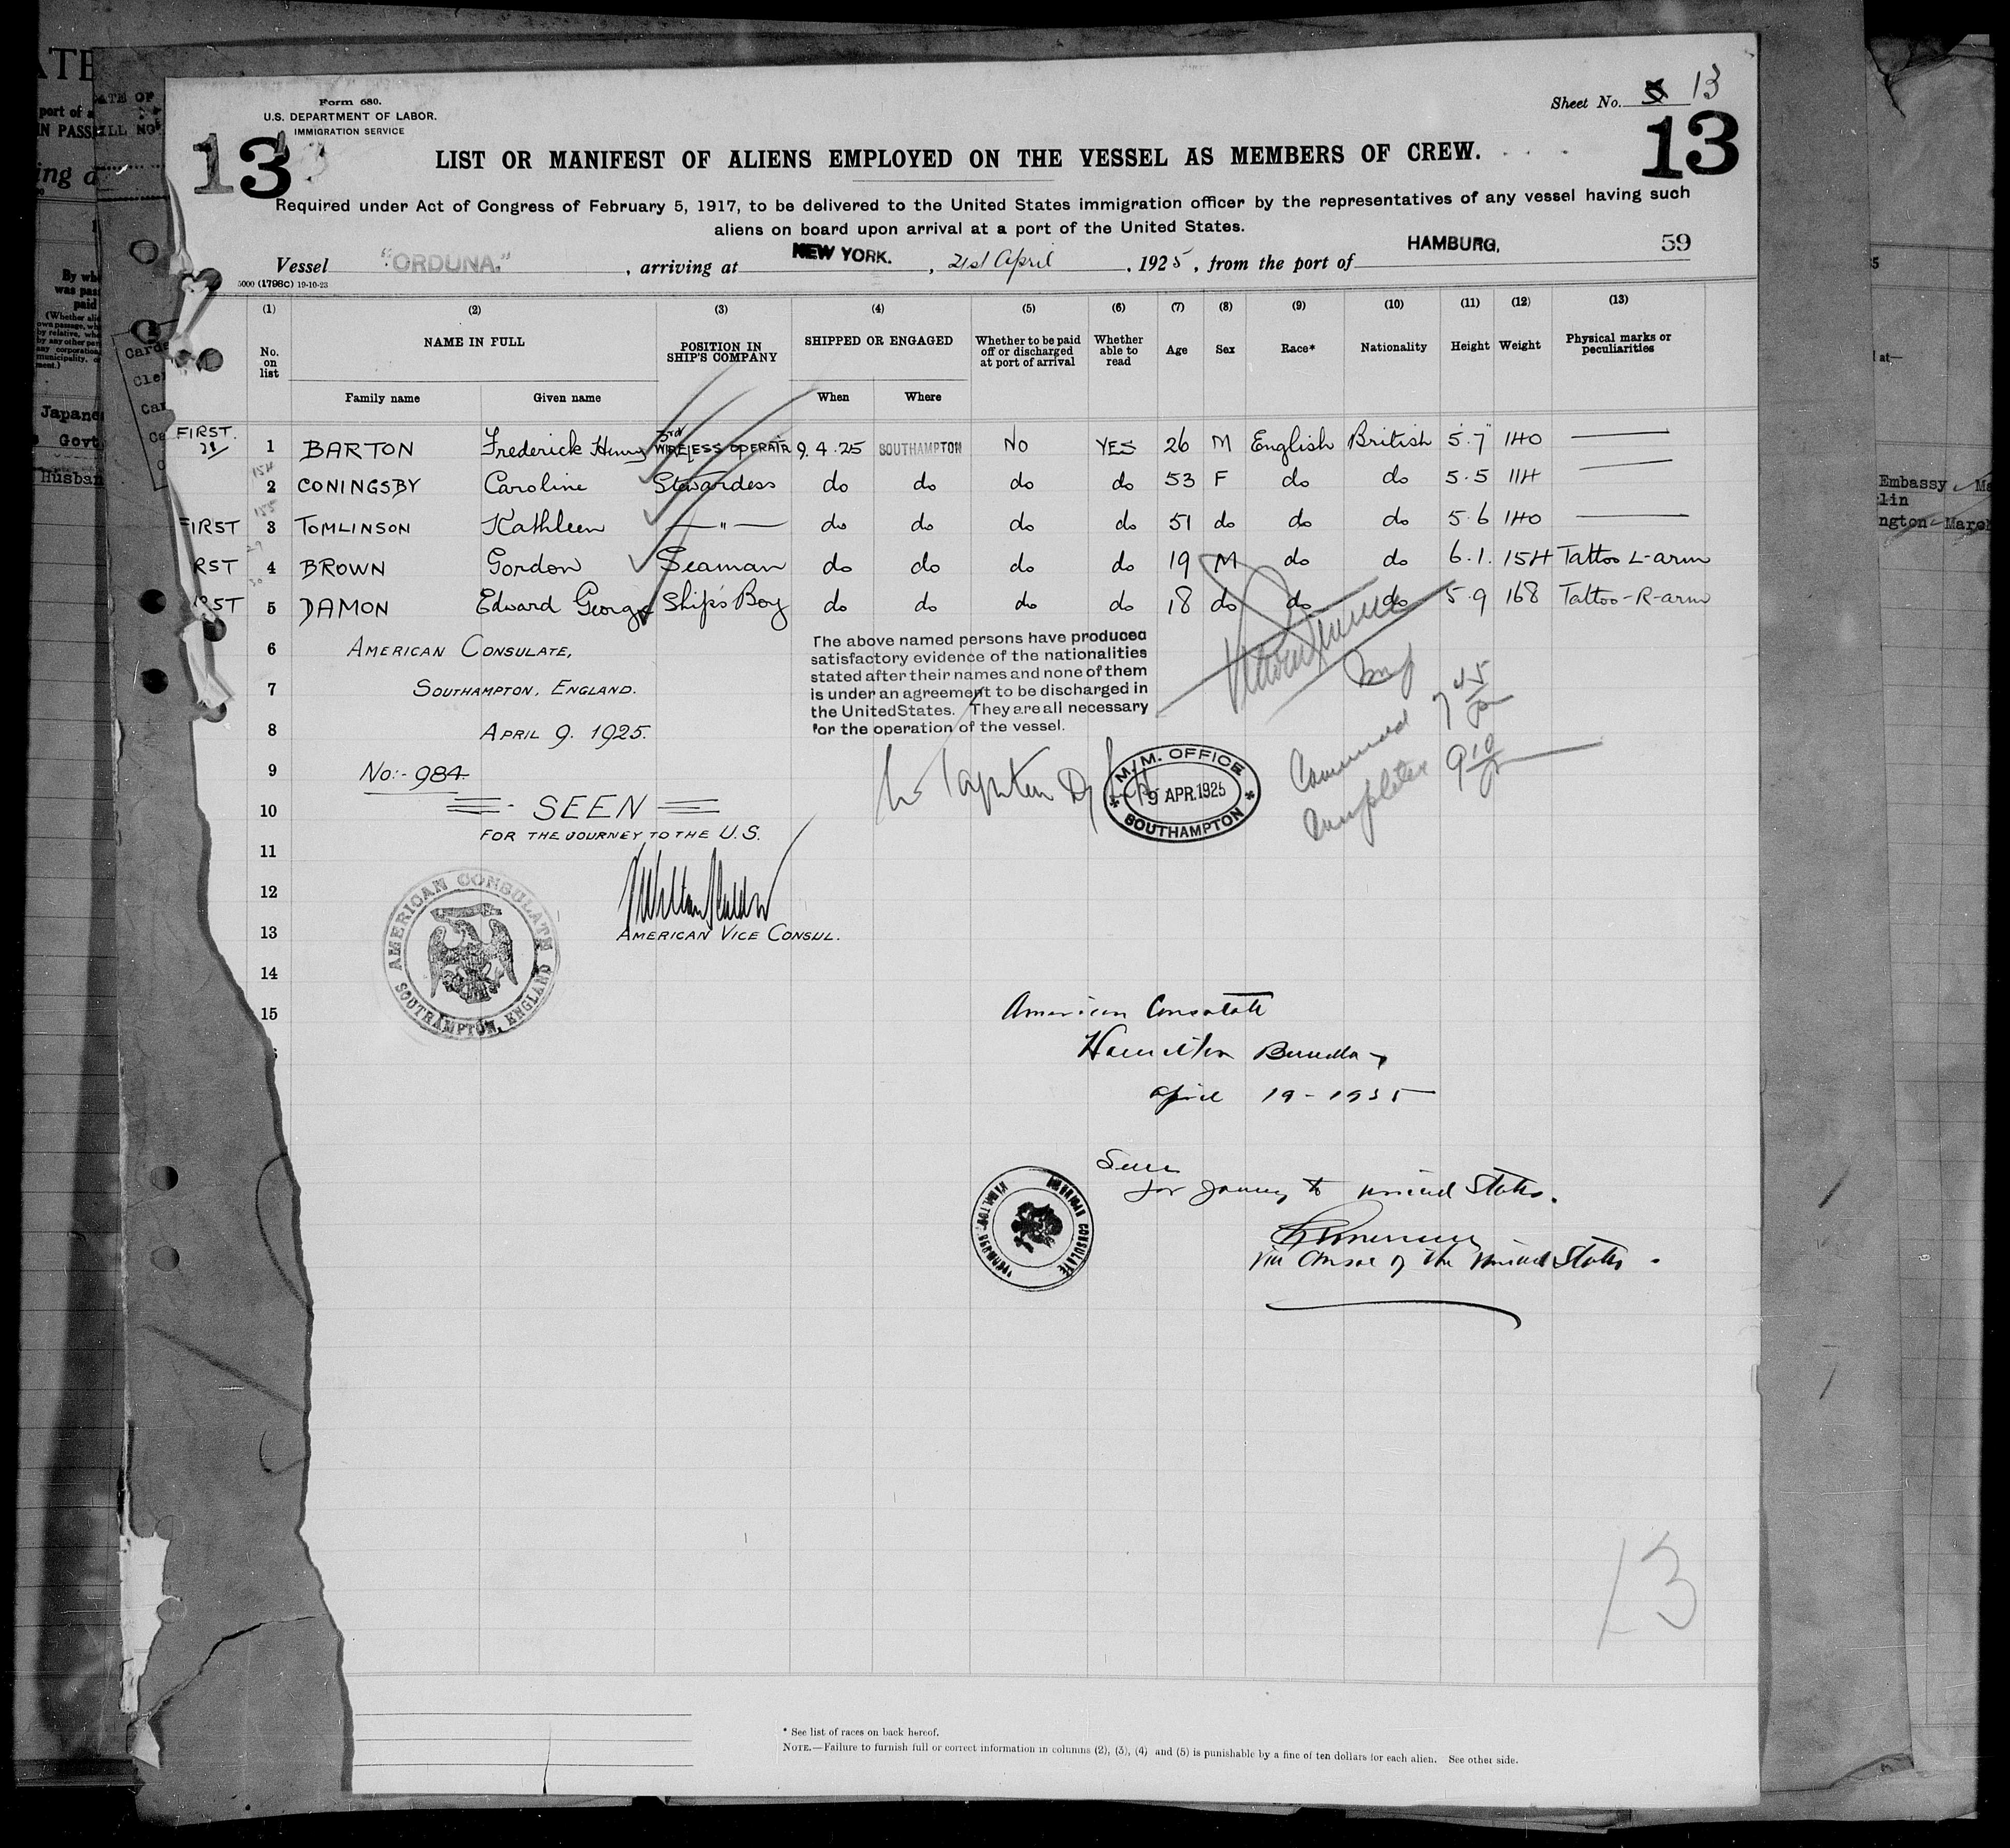 Form 680.
U.S. DEPARTMENT OF LABOR.
IMMIGRATION SERVICE
Sheet No. 13
13
13
LIST OR MANIFEST OF ALIENS EMPLOYED ON THE VESSEL AS MEMBERS OF CREW.
Required under Act of Congress of February 5, 1917, to be delivered to the United States immigration officer by the representatives of any vessel having such
aliens on board upon arrival at a port of the United States.
Vessel "ORDUNA," , arriving at NEW YORK. , 21st April , 1925, from the port of HAMBURG. 59
5000 (1798C) 19-10-23
(1) (2) (3) (4) (5) (6) (7) (8) (9) (10) (11) (12) (13)
No. on list NAME IN FULL POSITION IN SHIP'S COMPANY SHIPPED OR ENGAGED Whether to be paid off or discharged at port of arrival Whether able to read Age Sex Race* Nationality Height Weight Physical marks or peculiarities
Family name Given name When Where
FIRST. 1 BARTON Frederick Henry 3rd WIRELESS OPERATR 9.4.25 SOUTHAMPTON NO YES 26 M English British 5.7" 140 —
2 CONINGSBY Caroline Stewardess do do do do 53 F do do 5.5 114 —
FIRST 3 TOMLINSON Kathleen — " — do do do do 51 do do do 5.6 140 —
RST 4 BROWN Gordon Seaman do do do do 19 M do do 6.1. 154 Tattoo L-arm
RST 5 DAMON Edward George Ship's Boy do do do do 18 do do do 5.9 168 Tattoo-R-arm
6 AMERICAN CONSULATE,
7 SOUTHAMPTON, ENGLAND.
8 APRIL 9. 1925.
The above named persons have produced
satisfactory evidence of the nationalities
stated after their names and none of them
is under an agreement to be discharged in
the United States. They are all necessary
for the operation of the vessel.
Commenced 7 45
Completed 9 10
M.M. OFFICE
9 APR.1925
SOUTHAMPTON
9 No:- 984.
10 SEEN
FOR THE JOURNEY TO THE U.S.
11
12
13 AMERICAN VICE CONSUL.
AMERICAN CONSULATE
SOUTHAMPTON, ENGLAND
14
15
American Consulate
Hamilton Bermuda
April 19-1925
Seen
for journey to United States.
Vice Consul of the United States.
AMERICAN CONSULATE
HAMILTON, BERMUDA
13
* See list of races on back hereof.
NOTE.—Failure to furnish full or correct information in columns (2), (3), (4) and (5) is punishable by a fine of ten dollars for each alien. See other side.
Japane
Govt
Husban
Embassy
lin
ngton March